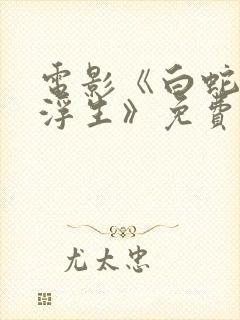 電影《白蛇
浮生》免費
尤太忠